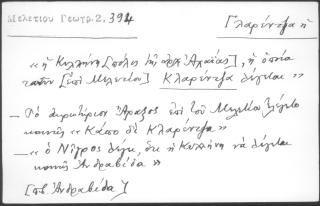 Μελετίου Γεωγρ. 2, 394
Γλαρέντζα ἡ
"ἡ Κυλλήνη [πόλις τῆς ἀρχ. Ἀχαΐας], ἡ ὁποία
τανῦν [ἐπὶ Μελετίου] Κλαρέντζα λέγεται"
— Τὸ ἀκρωτήριον Ἄραξος ἐπὶ τοῦ Μελετίου λέγεται
κοινῶς "Κάπο δὲ Κλαρέντζα"
— "ὁ Νίγρος λέγει, ὅτι ἡ Κυλλήνη νὰ λέγεται
κοινῶς Ἀνδραβίδα"
[πβ. Ἀνδραβίδα]